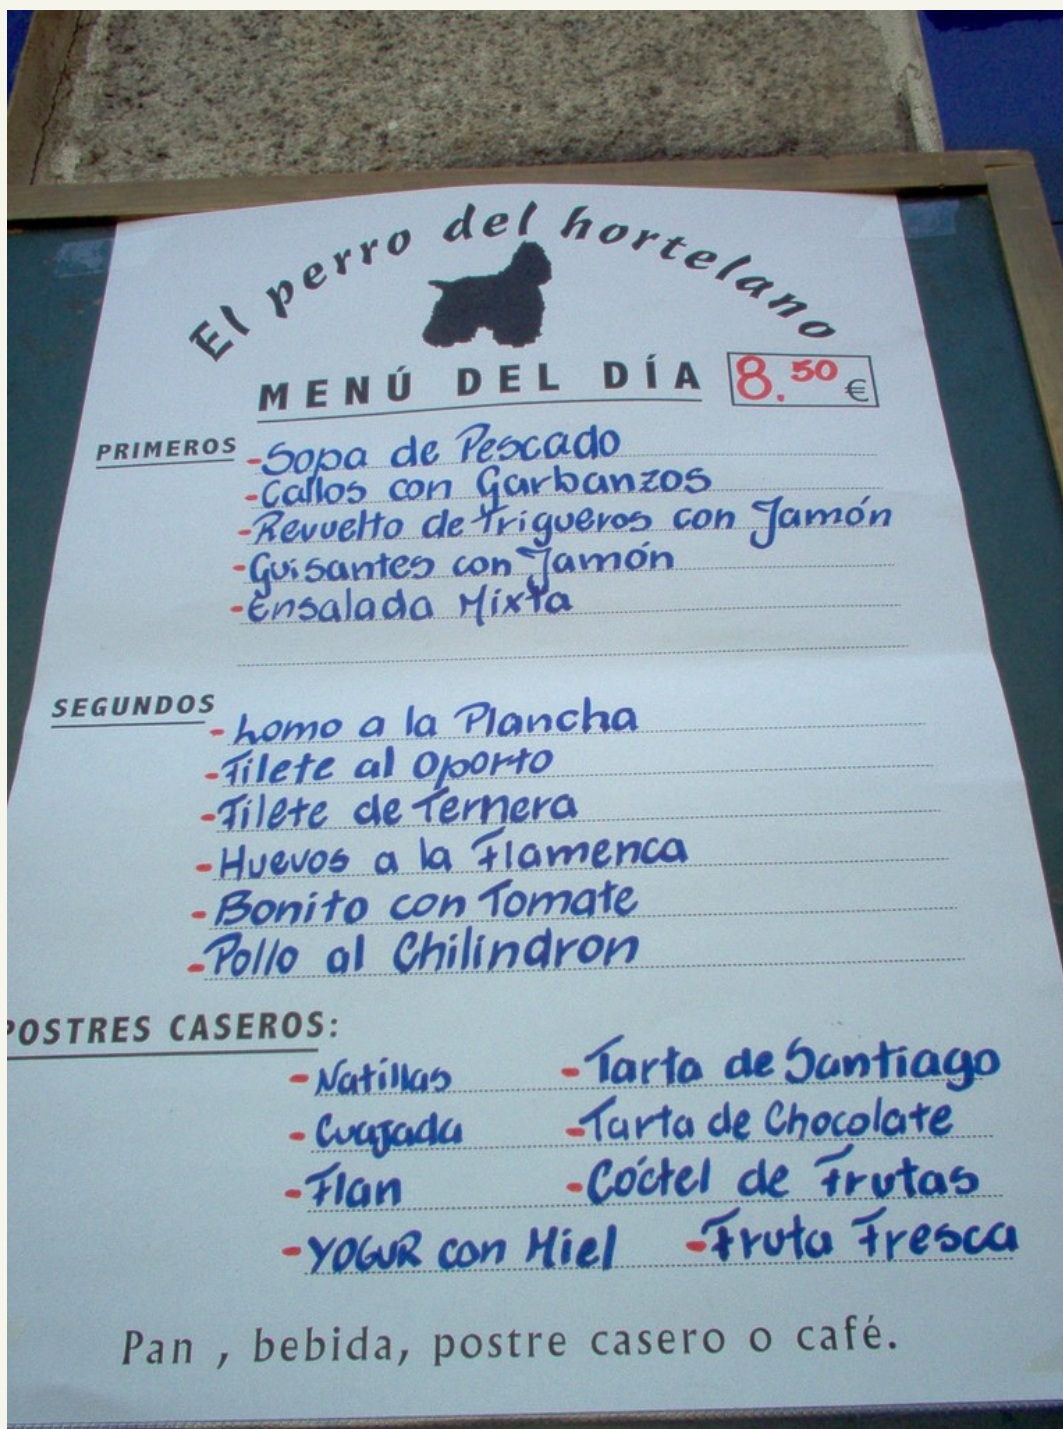 El perro del hortelano
MENÚ DEL DÍA 8.50 €
PRIMEROS -Sopa de Pescado
-Callos con Garbanzos
-Revuelto de Trigueros con Jamón
-Guisantes con Jamón
-Ensalada Mixta
SEGUNDOS
-Lomo a la Plancha
-Filete al Oporto
-Filete de Ternera
-Huevos a la Flamenca
-Bonito con Tomate
-Pollo al Chilindron
POSTRES CASEROS:
-Natillas -Tarta de Santiago
-Cuajada -Tarta de Chocolate
-Flan -Cóctel de Frutas
-YOGUR con Miel -Fruta Fresca
Pan , bebida, postre casero o café.